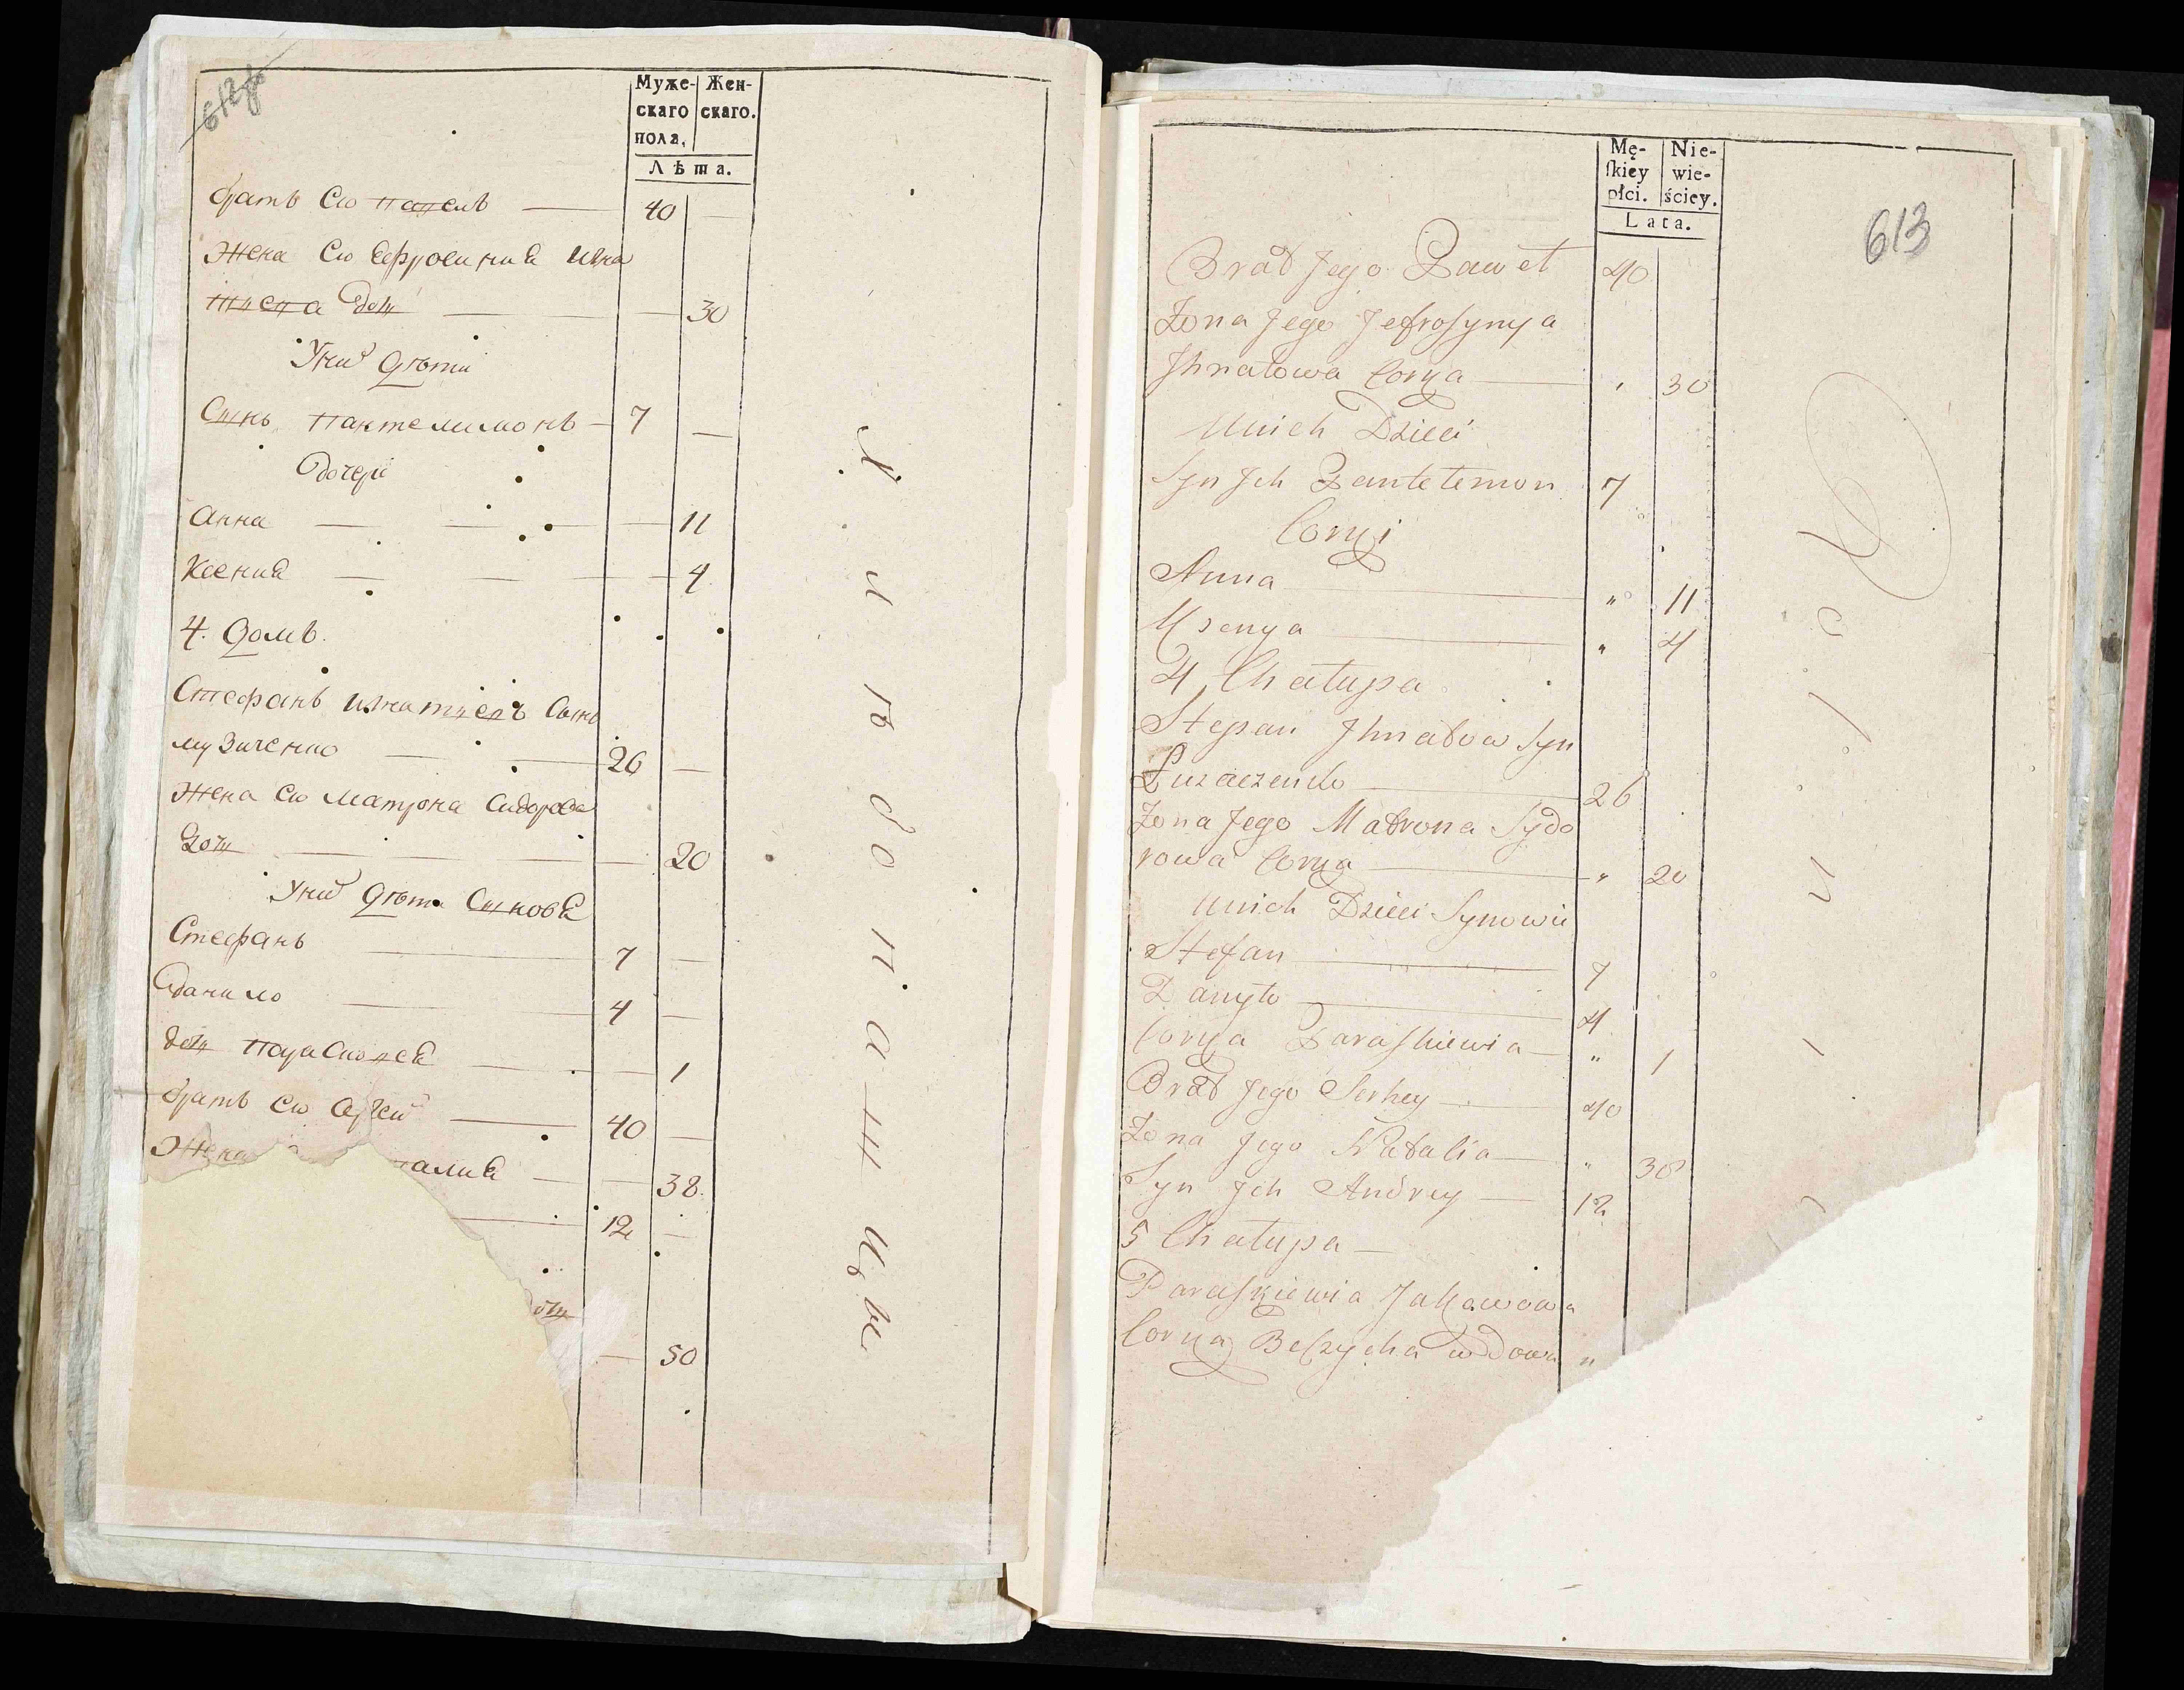 612 об
Муже-
скаго
пола,
Жен-
скаго.
Лѣта.
братъ Его павелъ — 40 —
Жена Его Ефросиния Игна
тиева дочь — 30
У них дѣти
Сынъ пантелимонъ — 7 —
дочери
Анна — 11
Ксения — 4
4. домъ.
Стефанъ Игнатиевъ Сынъ
— 26 —
Жена Его Матрона Сидорова
дочь — 20
У них дѣти Синовя
Стефанъ — 7 —
Данило — 4 —
дочь параскевя — 1
братъ Его Сергей — 40 —
Жена талия — 38.
— 12 —
очь
— 50
613
Mę-
ſkiey
płci.
Nie-
wie-
ściey.
Lata.
Brat Jego Paweł 40
Zona Jego Jefrosynya
Jhnatowa Corka — " 30
Unich Dzieci
Syn Jch Pantelemon 7
Corki
Anna — " 11
Ksenya — " 4
4 Chałupa
Stepan Jhnatow Syn
— 26
Zona Jego Matrona Sydo
rowa Corka — " 20
Unich Dzieci Synowie
Stefan — 7
Danyło — 4
Corka Paraskiewia — " 1
Brat Jego Serhey — 40
Zona Jego Natalia — " 38
Syn Jch Andrey — 12
5 Chałupa —
Paraskiewia Jakowowa
Corka wdowa "